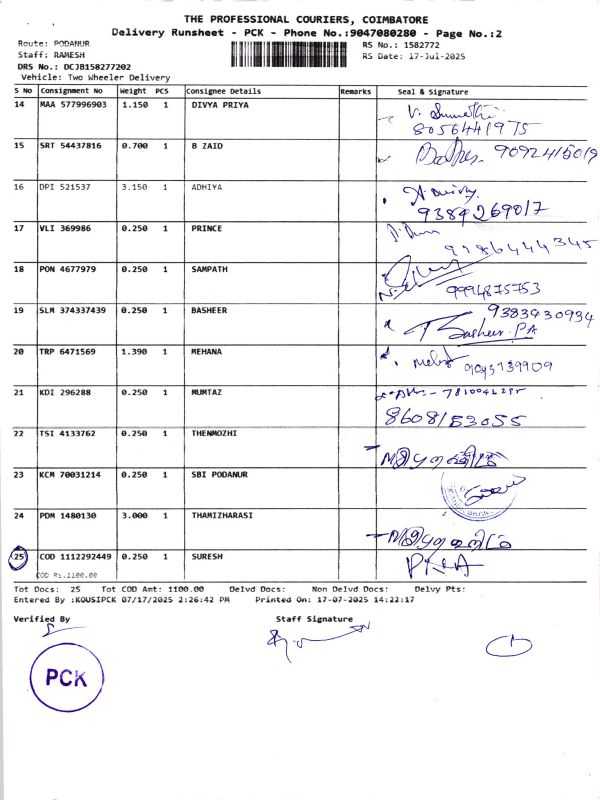 THE PROFESSIONAL COURIERS, COIMBATORE
Delivery Runsheet - PCK - Phone No.:9047080280 - Page No.:2
Route: PODANUR
RS No.: 1582772
Staff: RAMESH
RS Date: 17-Jul-2025
DRS No.: DCJB158277202
Vehicle: Two Wheeler Delivery
S No Consignment No Weight PCS Consignee Details Remarks Seal & Signature
14 MAA 577996903 1.150 1 DIVYA PRIYA
8056441975
15 SRT 54437816 0.700 1 B ZAID 9092415019
16 DPI 521537 3.150 1 ADHIYA
9384269017
17 VLI 369986 0.250 1 PRINCE
9986444345
18 PON 4677979 0.250 1 SAMPATH
9994875753
19 SLM 374337439 0.250 1 BASHEER 9383930934
20 TRP 6471569 1.390 1 MEHANA
21 KDI 296288 0.250 1 MUMTAZ
8608153055
22 TSI 4133762 0.250 1 THENMOZHI
23 KCM 70031214 0.250 1 SBI PODANUR
24 PDM 1480130 3.000 1 THAMIZHARASI
25 COD 1112292449 0.250 1 SURESH
COD Rs.1100.00
Tot Docs: 25 Tot COD Amt: 1100.00 Delvd Docs: Non Delvd Docs: Delvy Pts:
Entered By :KOUSIPCK 07/17/2025 2:26:42 PM Printed On: 17-07-2025 14:22:17
Verified By
Staff Signature
PCK